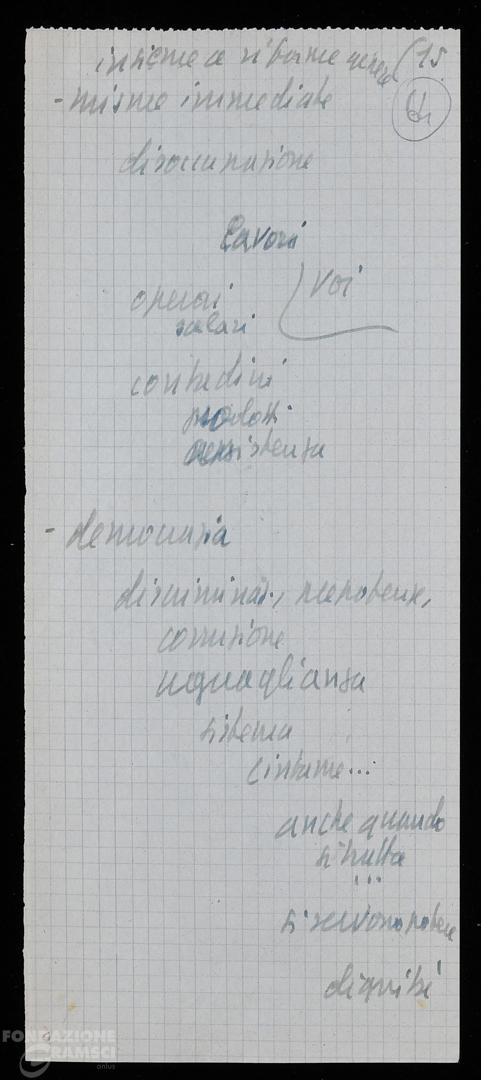 insieme a riforme gener. (15
- misure immediate
disoccupazione
lavori
operai ) voi
salari
contadini
prodotti
assistenza
- democrazia
discriminaz., prepotenze,
corruzione
uguaglianza
sistema
costume...
anche quando
si tratta
...
si servono potere
dignità
FONDAZIONE
GRAMSCI
onlus